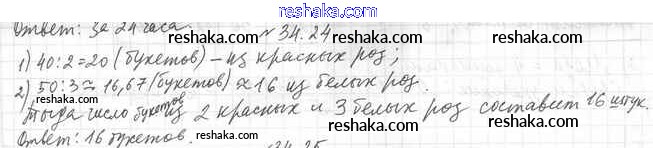 reshaka.com
Ответ: за 24 часа. №34.24
1) 40:2=20 (букетов) – из красных роз;
reshaka.com reshaka.com
2) 50:3≈16,67 (букетов) ≈ 16 из белых роз.
reshaka.com
Тогда число букетов из 2 красных и 3 белых роз составит 16 штук.
reshaka.com reshaka.com
Ответ: 16 букетов. reshaka.com
34.25